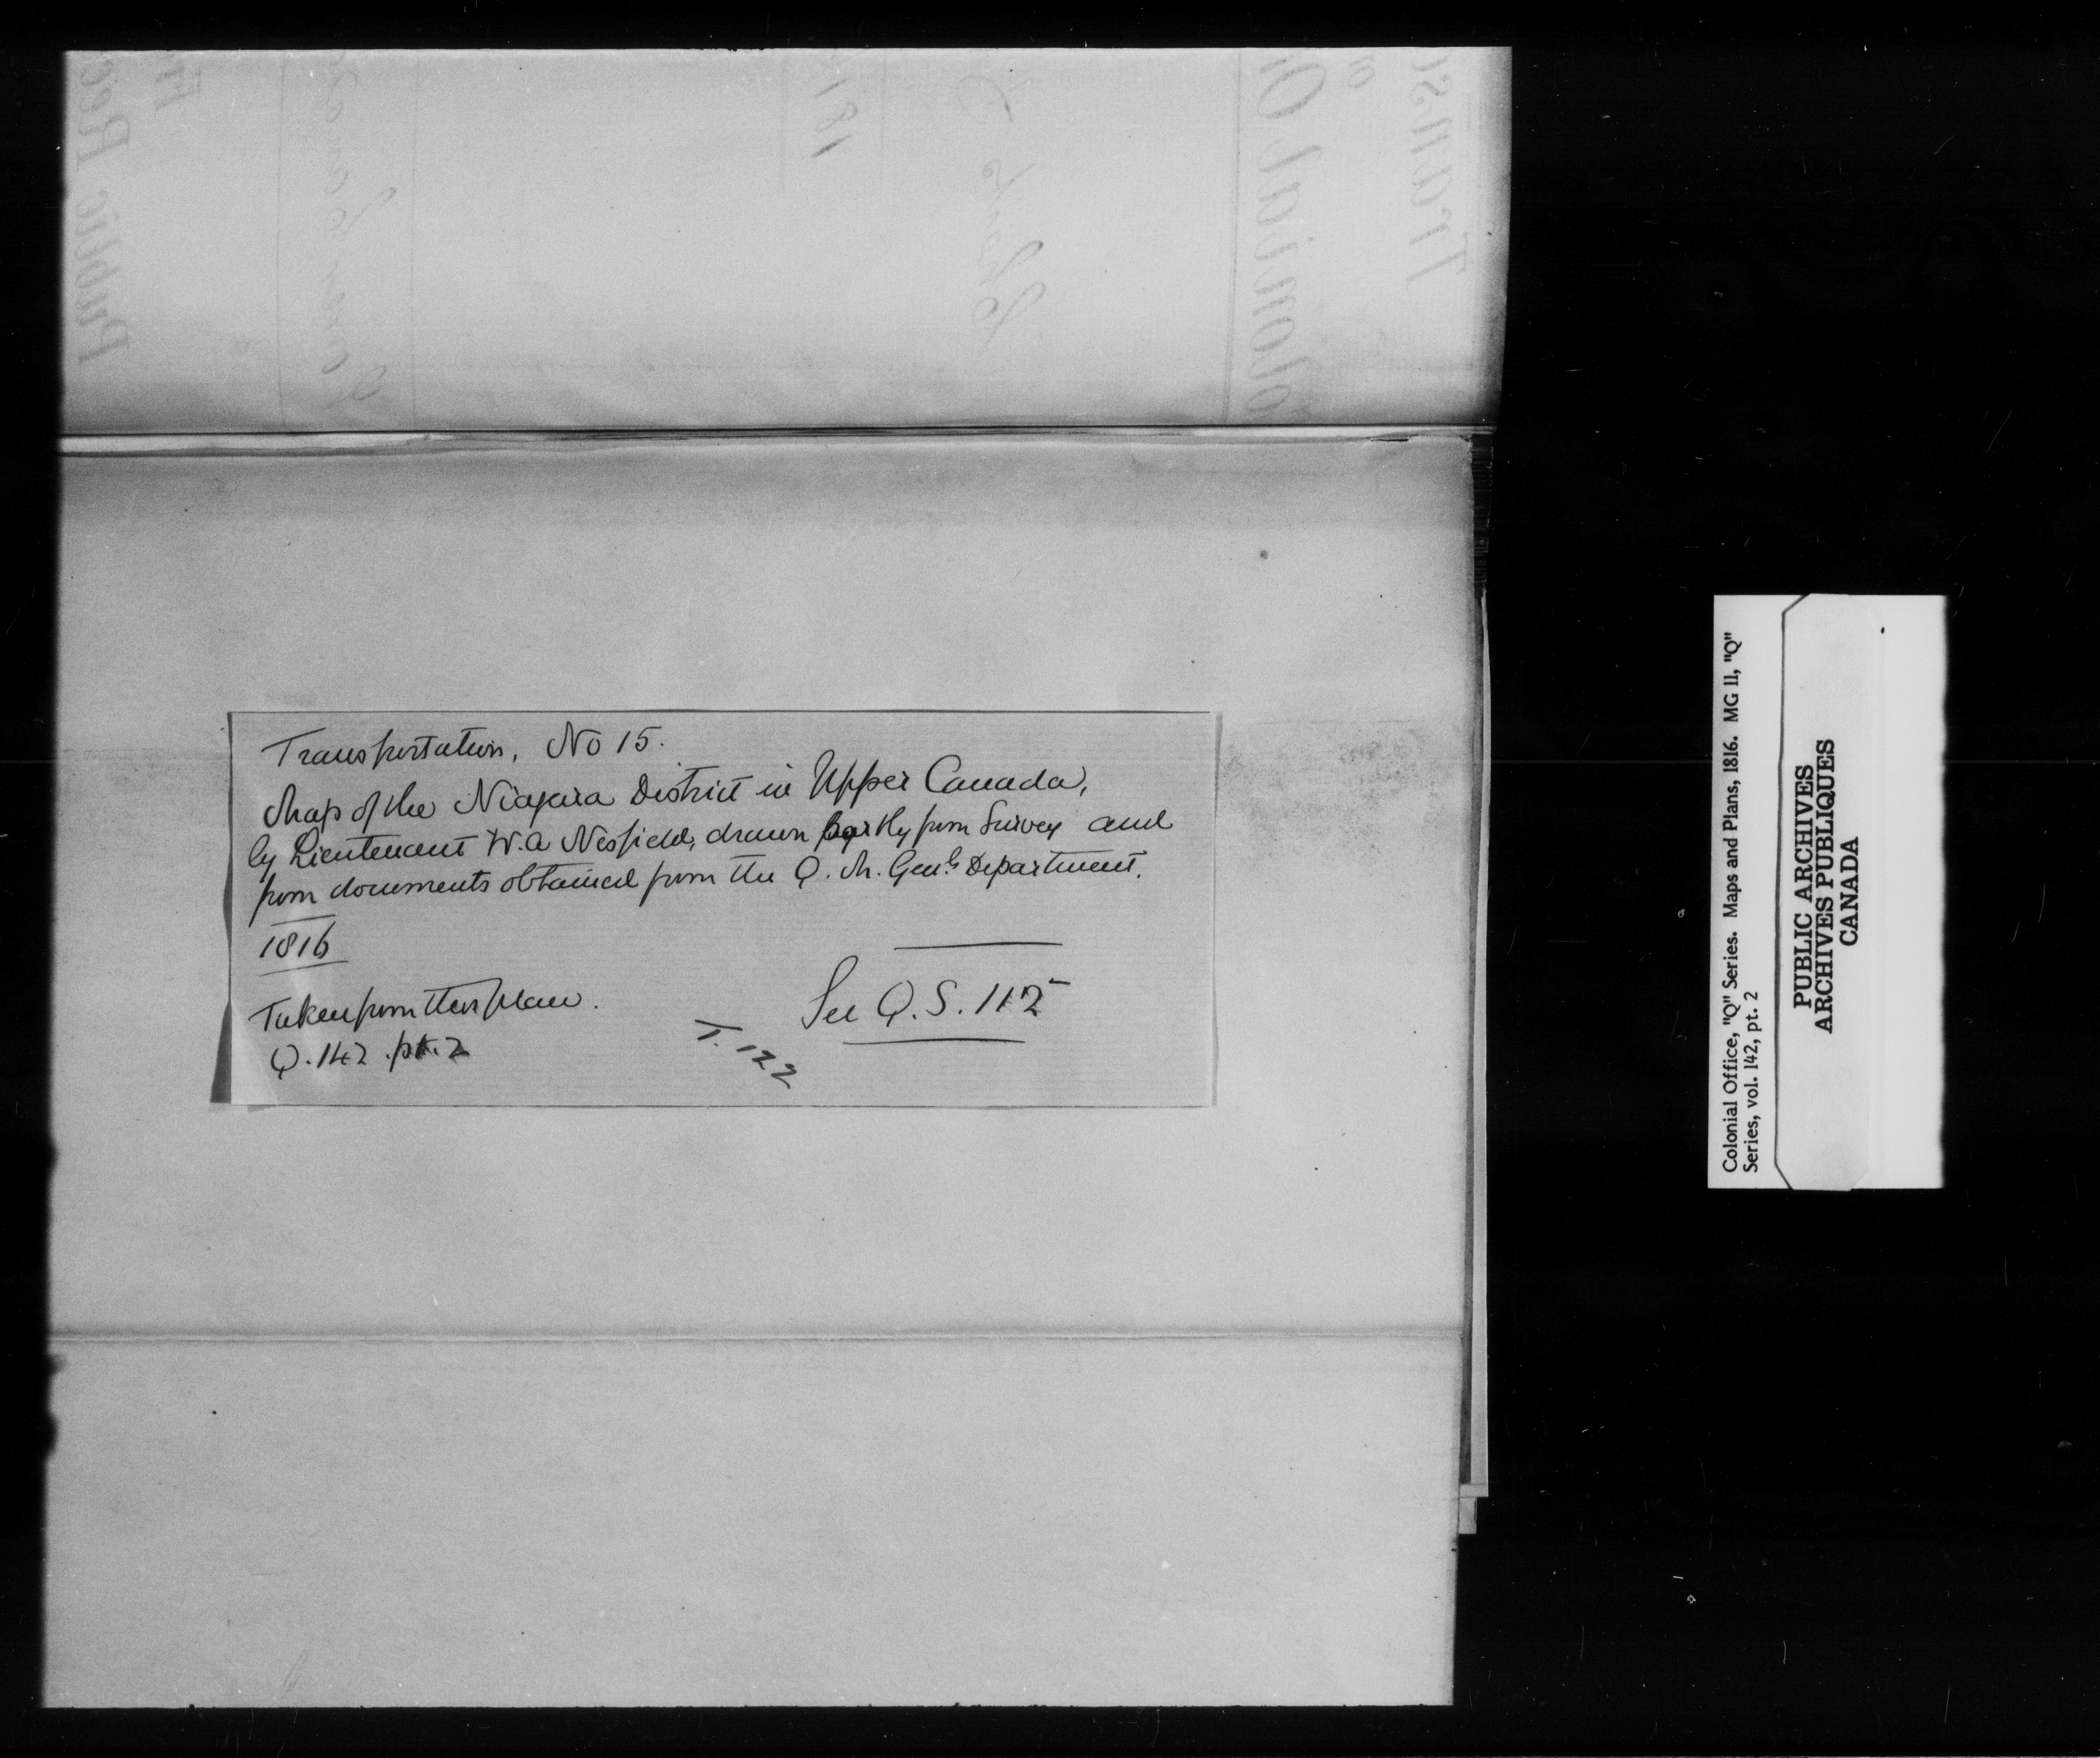 Transportation, No 15.
Map of the Niagara District in Upper Canada,
by Lieutenant W. A Nesfield, drawn partly from Survey and
from documents obtained from the Q. M. Genls Department.
1816
Taken from this place.
Q. 142 . pt. 2
T. 122
See Q. S. 112
Colonial Office, "Q" Series. Maps and Plans, 1816. MG 11, "Q"
Series, vol. 142, pt. 2
PUBLIC ARCHIVES
ARCHIVES PUBLIQUES
CANADA
Public Rec
181
Trans